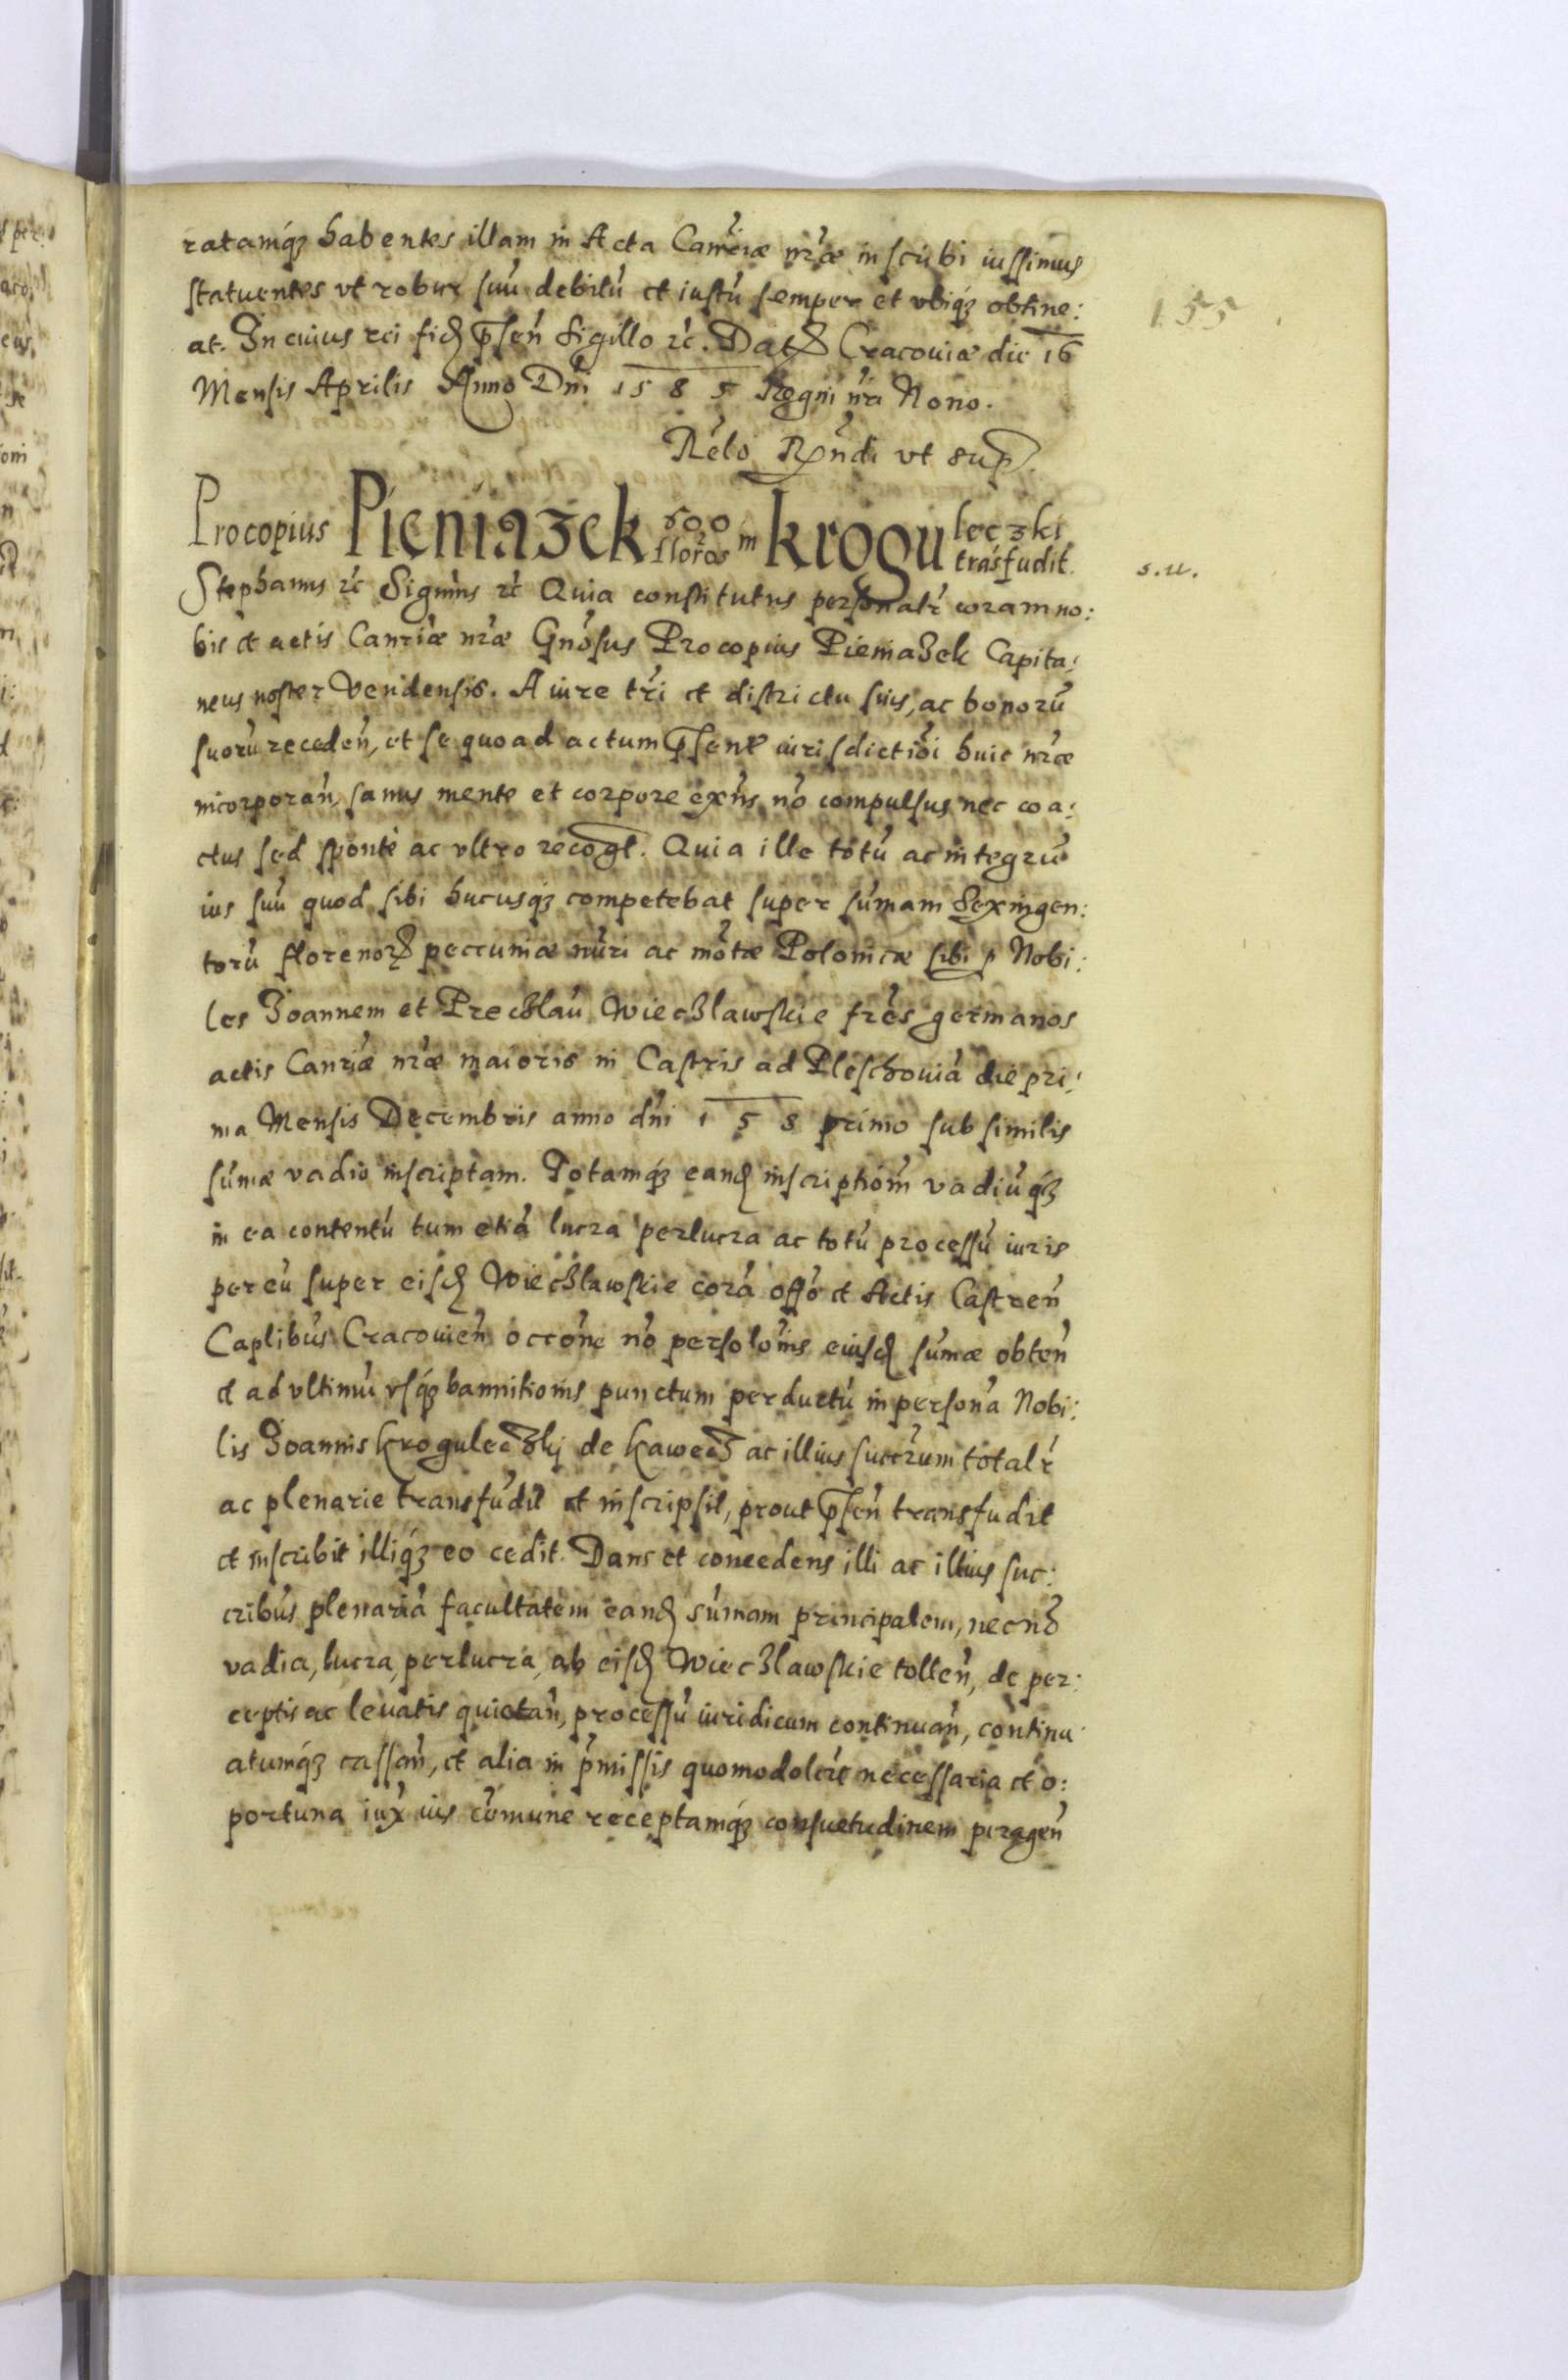 ratamq́ꝫ habentes illam in Acta Canc̃riæ nr̃æ inscribi iussimus
155
statuentes vt robur suũ debitũ et iustũ semper et vbiqꝫ obtine:
at. In cuius rei fid. p̃sen̄ Sigillo &c. Dat. Cracouiæ die 16
Mensis Aprilis Anno Dñi 1585 Regni nr̃i Nono.
Relo Rn̄di vt sup.
Procopius Pieniazek 600 flor̃os in krogu leczki trãsfudit.
s.u.
Stephanus &c Significamus &c Quia constitutus personalr̃ coram no:
bis et actis Canr̃iæ nr̃æ Gnõsus Procopius Pieniazek Capita:
neus noster Vendensis. A iure tr̃i et districtu suis, ac bonorũ
suorũ receden̄, et se quoad actum p̃sent iurisdictiõi huic nr̃æ
incorporan̄, sanus mente et corpore exñs, nõ compulsus nec coa:
ctus sed sponte ac vltro recogt. Quia ille totũ ac integrũ
ius suũ quod sibi hucusqꝫ competebat super sũmam Sexingen:
torũ florenorꝫ pecuniæ nũri ac mõtæ Polonicæ sibi p Nobi:
les Joannem et Preczlaũ Wieczlawskie frẽs germanos
actis Canr̃iæ nr̃æ maioris in Castris ad Pleschouiã die pri:
ma Mensis Decembris anno dñi 158 primo sub similis
sũmæ vadio inscriptam. Totamqꝫ eand. inscriptiõm vadiũqꝫ
in ea contentũ tum etiã lucra perlucra ac totũ processũ iuris
per eũ super eisd. Wieczlawskie corã offõ et Actis Castren̄
Caplibus Cracouien̄ occõne nõ persolõnis eiusd. sũmæ obten̄
et ad vltimũ vsqꝫ bannitionis punctum perductũ in personã Nobi:
lis Joannis kroguleczki de kawecz ac illius succr̃um totalr̃
ac plenarie transfudit et inscripsit, prout p̃sen̄ transfudit
et inscribit illiqꝫ eo cedit. Dans et concedens illi ac illius suc:
cribus plenariã facultatem eand. sũmam principalem, necnõ
vadia, lucra, perlucra, ab eisd. Wieczlawskie tollen̄, de per:
ceptis ac leuatis quietan̄, processũ iuridicum continuan̄, continu
atumqꝫ cassan̄, et alia in p̃missis quomodolt necessaria et o:
portuna iux ius cõmune receptamqꝫ consuetudinem peragen̄